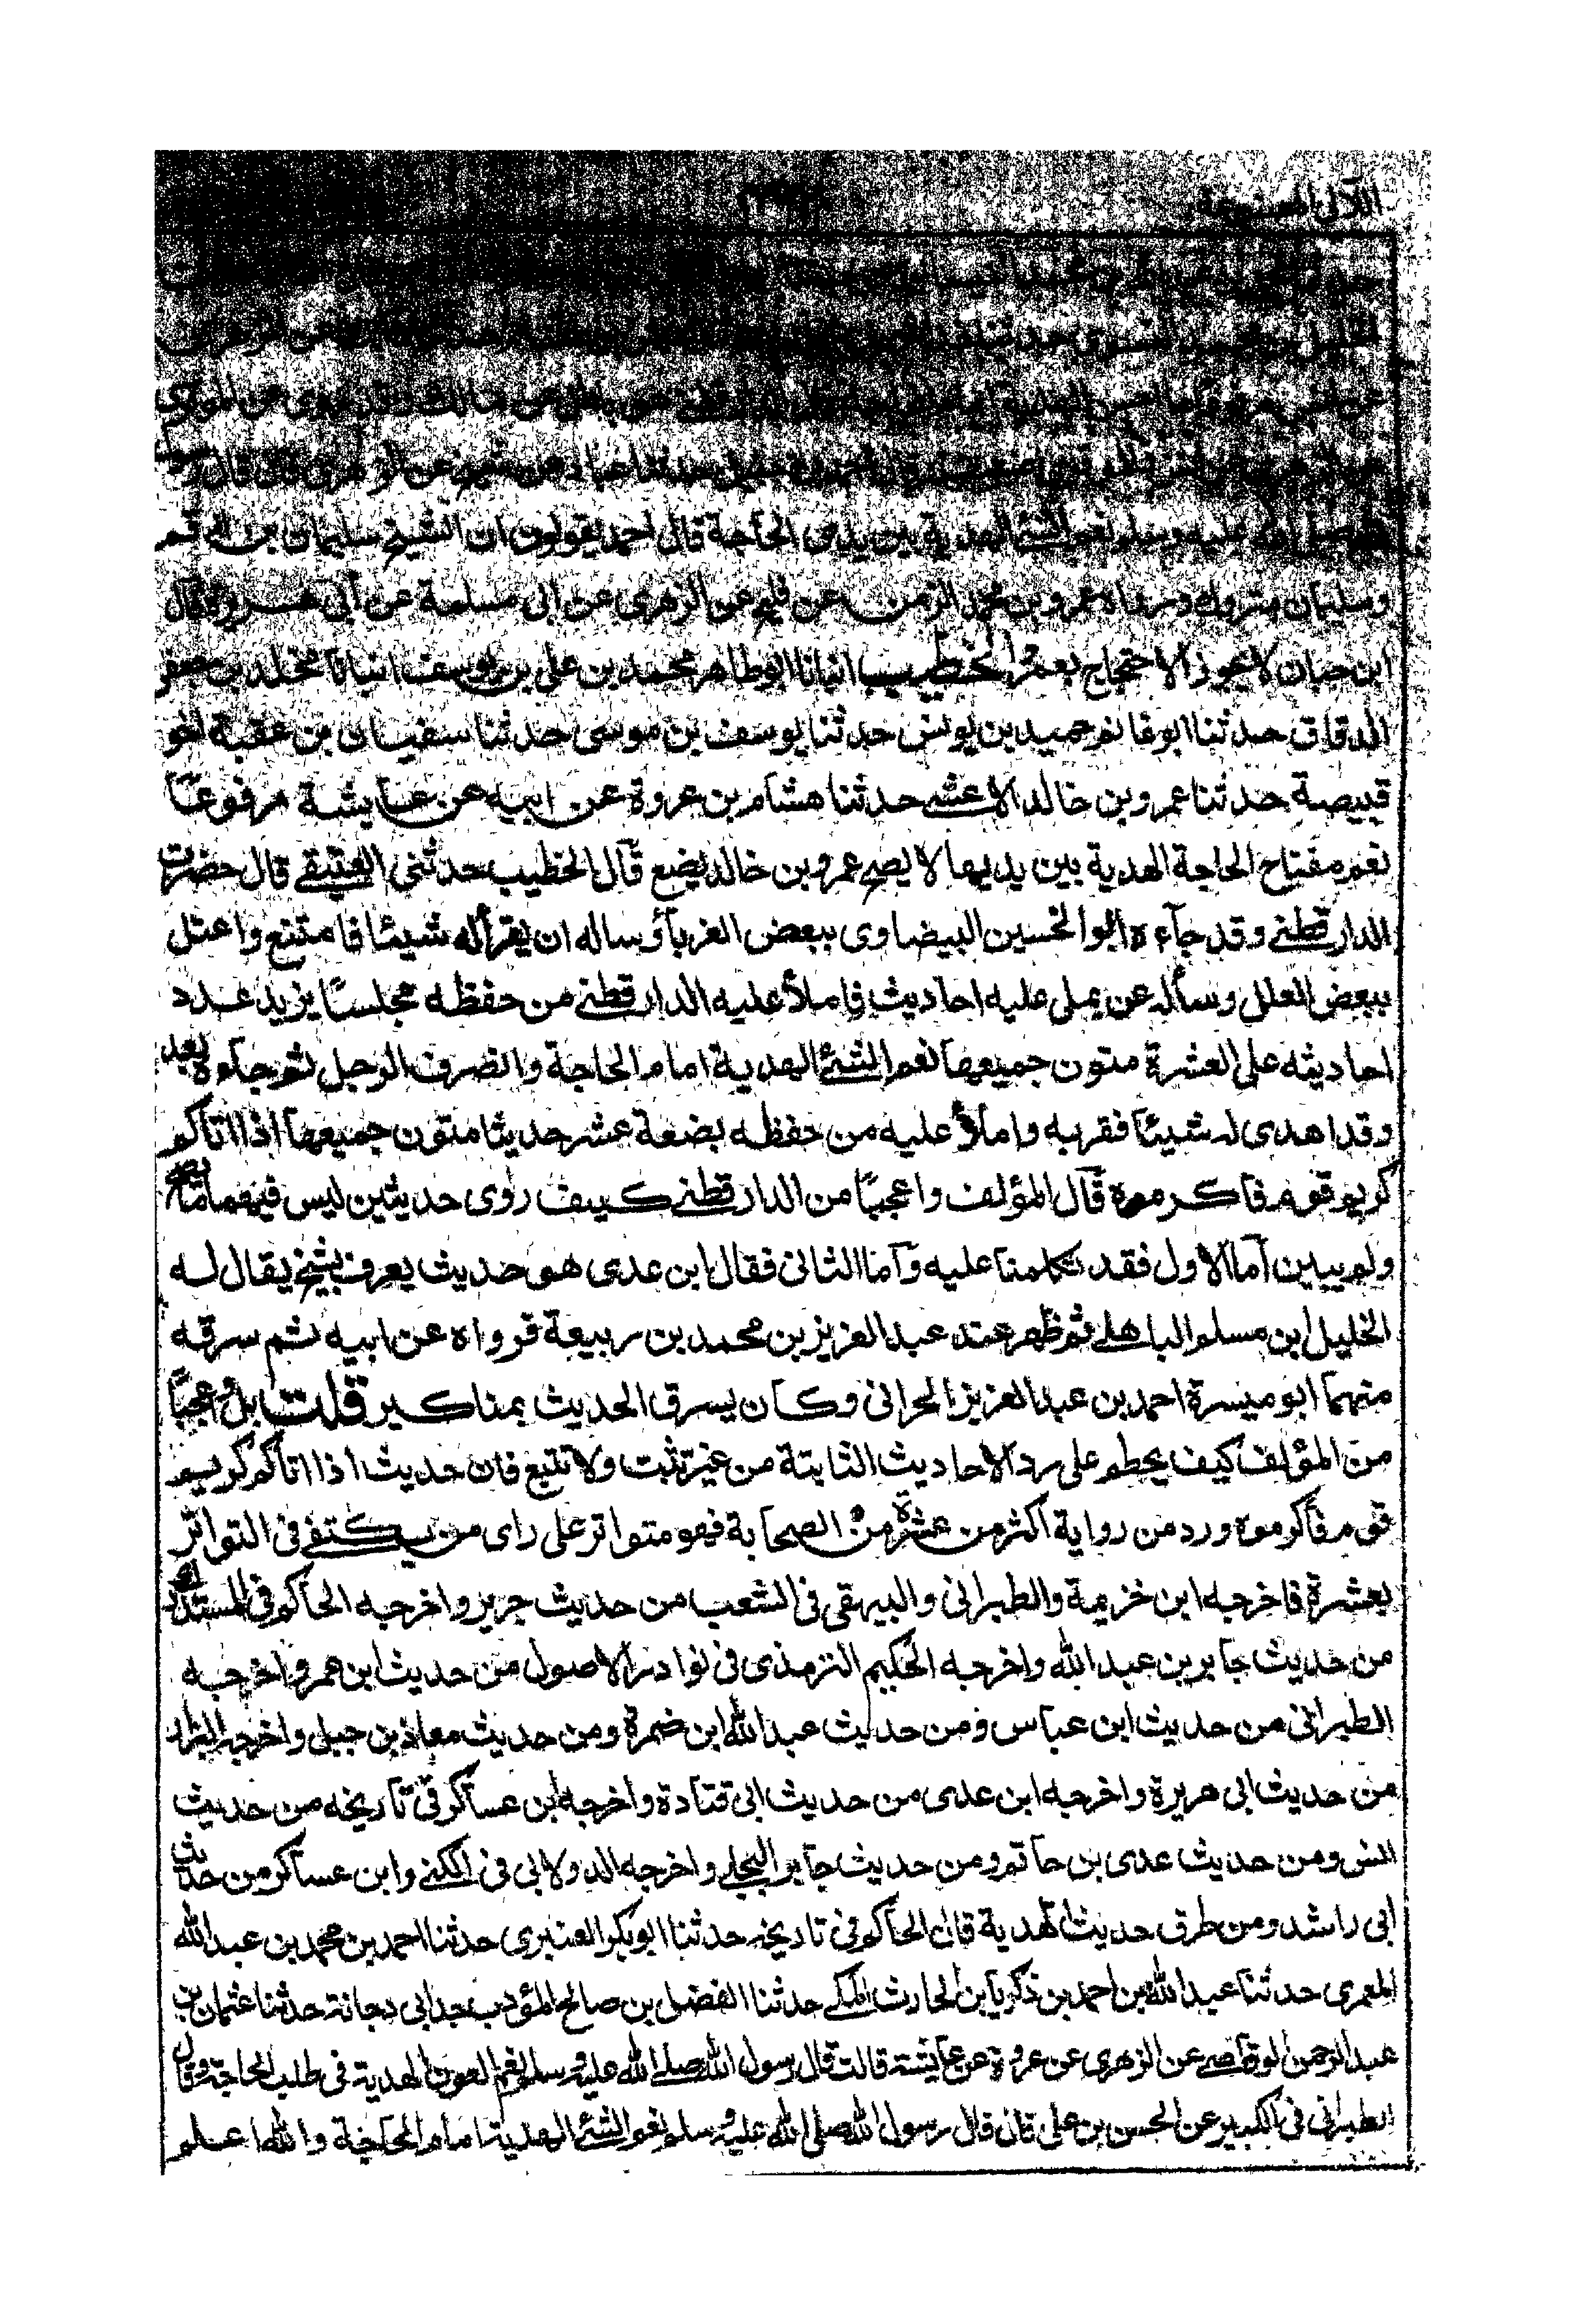 اللآلى المصنوعة
صلى الله عليه وسلم نعم الشئ الهدية بين يدى الحاجة قال احمد يقولون ان الشيخ سليمان بن ارقم
وسليمان متروك ورواه عمرو بن محمد الزمن عن فليح عن الزهرى عن ابى سلمة عن ابى هريرة قال
ابن حبان لا يجوز الاحتجاج بعمر الخطيب انبانا ابو طاهر محمد بن على بن يوسف انبانا مخلد بن جعفر
الدقاق حدثنا ابو غانم حميد بن يونس حدثنا يوسف بن موسى حدثنا سفيان بن عقبة اخو
قبيصة حدثنا عمرو بن خالد الاعشى حدثنا هشام بن عروة عن ابيه عن عايشة مرفوعًا
نعم مفتاح الحاجة الهدية بين يديها لا يصح عمرو بن خالد يضع قال الخطيب حدثنى العتيقى قال حضرت
الدارقطنے وقد جآءه ابو الحسين البيضاوى ببعض الغربآؤ ساله ان يقرأ له شيئا فامتنع واعتل
ببعض العلل وسأله عن يملى عليه احاديث فاملأ عليه الدارقطنے من حفظه مجلسًا يزيد عدد
احاديثه على العشرة متون جميعها نعم الشئ الهدية امام الحاجة وانصرف الرجل ثم جآءه بعد
وقد اهدى له شيئا فقربه واملأ عليه من حفظه بضعة عشر حديثا متون جميعها اذا اتاكم
كريم قوم فاكرموه قال المؤلف واعجبًا من الدارقطنے كيف روى حديثين ليس فيهما ما يصح
ولم يبين آما الاول فقد تكلمنا عليه وآما الثانى فقال ابن عدى هو حديث يعرف بشيخ يقال له
الخليل ابن مسلم الباهلے ثم ظهر عند عبد العزيز بن محمد بن ربيعة فرواه عن ابيه ثم سرقه
منهما ابو ميسرة احمد بن عبد العزيز الحرانى وكان يسرق الحديث بمناكير قلت بل واعجبًا
من المؤلف كيف يحطم على رد الاحاديث الثابتة من غير تثبت ولا تتبع فان حديث اذا اتاكم كريم
قوم فاكرموه ورد من رواية اكثر من عشرة من الصحابة فهو متواتر على راى من يكتفے فى التواتر
بعشرة فاخرجه ابن خزيمة والطبرانى والبيهقى فى الشعب من حديث جرير واخرجه الحاكم فى المستدرك
من حديث جابر بن عبد الله واخرجه الحكيم الترمذى فى نوادر الاصول من حديث ابن عمر واخرجه
الطبرانى من حديث ابن عباس ومن حديث عبد الله ابن ضمرة ومن حديث معاذ بن جبل واخرجه البزار
من حديث ابى هريرة واخرجه ابن عدى من حديث ابى قتادة واخرجه ابن عساكر فى تاريخه من حديث
انس ومن حديث عدى بن حاتم ومن حديث جابر البجلے واخرجه الدولابى فى الكنے وابن عساكر من حديث
ابى راشد ومن طرق حديث الهدية قال الحاكم فى تاريخه حدثنا ابو بكر العنبرى حدثنا احمد بن محمد بن عبد الله
المعمرى حدثنا عبد الله بن احمد بن ذكريا بن الحارث المكے حدثنا الفضل بن صالح المؤدب جد ابى دجانة حدثنا عثمان بن
عبد الرحمن الوقاصے عن الزهرى عن عروة عن عآيشة قالت قال رسول الله صلے الله عليه وسلم نعم العون الهدية فى طلب الحاجة وقال
الطبرانى فى الكبير عن الحسن بن على قال قال رسول الله صلى الله عليه وسلم نعم الشئ الهدية امام الحاجة والله اعلم